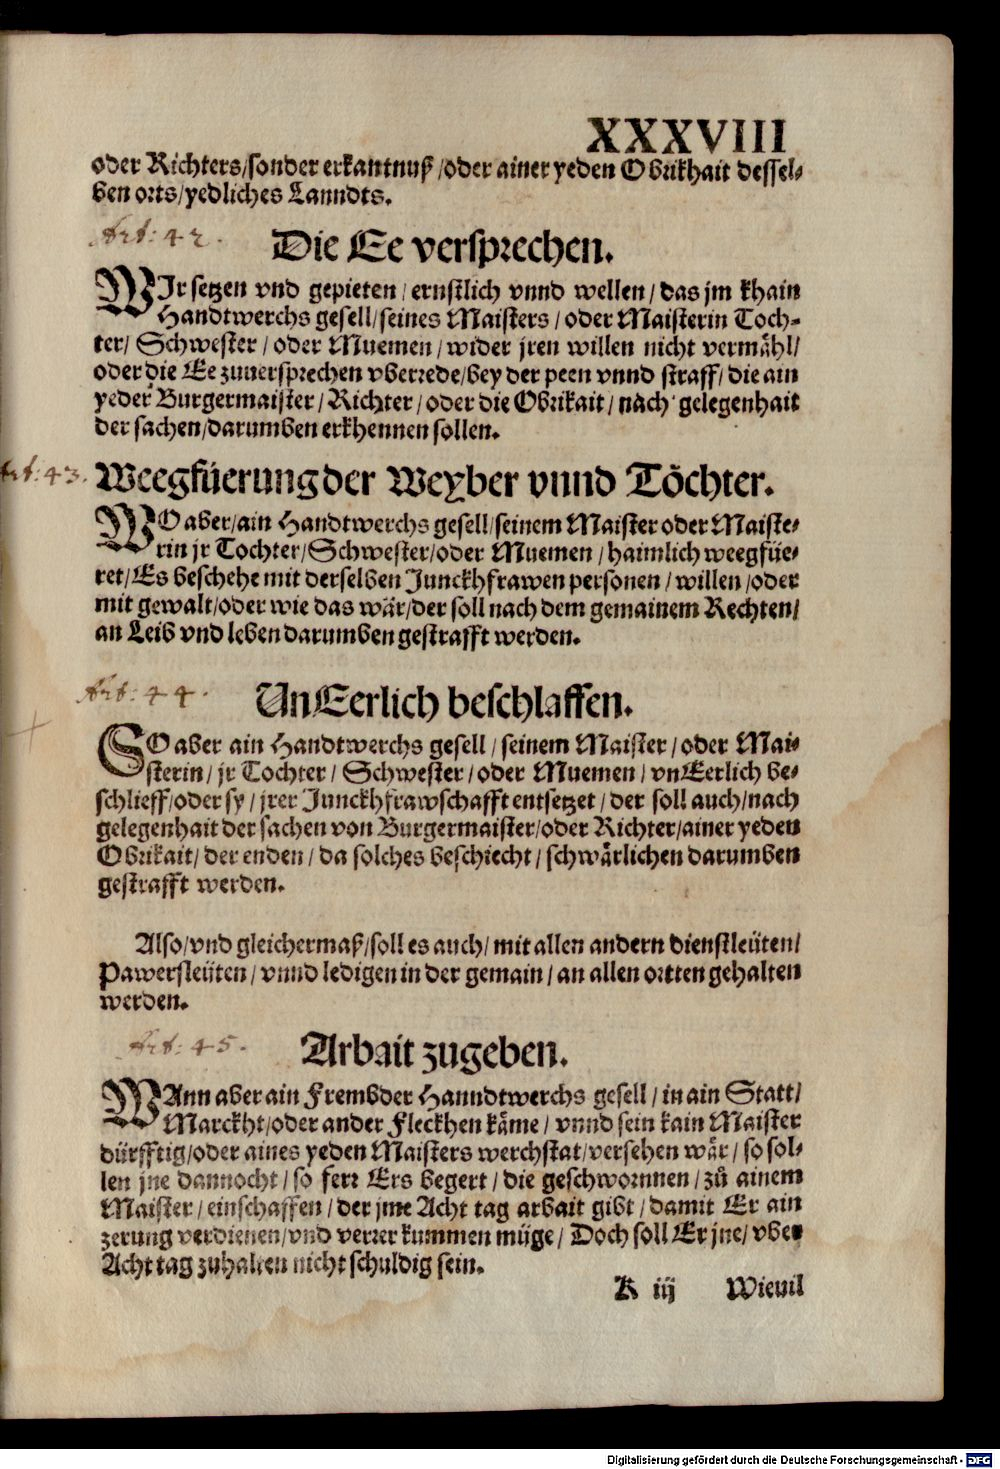 XXXVIII
oder Richters/sonder erkantnuß/oder ainer yeden Obrikhait dessel-
ben orts/yedliches Lanndts.
Art: 42.
Die Ee versprechen.
WIr setzen vnd gepieten/ernstlich vnnd wellen/das jm khain
Handtwerchs gesell/seines Maisters/oder Maisterin Toch-
ter/Schwester/oder Muemen/wider jren willen nicht vermähl/
oder die Ee zuuersprechen vberrede/bey der peen vnnd straff/die ain
yeder Burgermaister/Richter/oder die Obrikait/nach gelegenhait
der sachen/darumben erkhennen sollen.
Art: 43.
Weegfüerung der Weyber vnnd Töchter.
WO aber/ain Handtwerchs gesell/seinem Maister oder Maiste-
rin jr Tochter/Schwester/oder Muemen/haimlich weegfüe-
ret/Es beschehe mit derselben Junckhfrawen personen/willen/oder
mit gewalt/oder wie das wär/der soll nach dem gemainem Rechten/
an Leib vnd leben darumben gestrafft werden.
Art: 44.
UnEerlich beschlaffen.
SO aber ain Handtwerchs gesell/seinem Maister/oder Mai-
sterin/jr Tochter/Schwester/oder Muemen/vnEerlich be-
schlieff/oder sy/jrer Junckhfrawschafft entsetzet/der soll auch/nach
gelegenhait der sachen von Burgermaister/oder Richter/ainer yeden
Obrikait/der enden/da solches beschiecht/schwärlichen darumben
gestrafft werden.
Also/vnd gleichermaß/soll es auch/mit allen andern dienstleüten/
Pawersleüten/vnnd ledigen in der gemain/an allen ortten gehalten
werden.
Art: 45.
Arbait zugeben.
WAnn aber ain Frembder Hanndtwerchs gesell/in ain Statt/
Marckht/oder ander Fleckhen käme/vnnd sein kain Maister
dürfftig/oder aines yeden Maisters werchstat/versehen wär/so sol-
len jne dannocht/so ferr Ers begert/die geschwornnen/zů ainem
Maister/einschaffen/der jme Acht tag arbait gibt/damit Er ain
zerung verdienen/vnd verrer kummen müge/Doch soll Er jne/vber
Acht tag zuhalten nicht schuldig sein.
K iij Wieuil
Digitalisierung gefördert durch die Deutsche Forschungsgemeinschaft - DFG